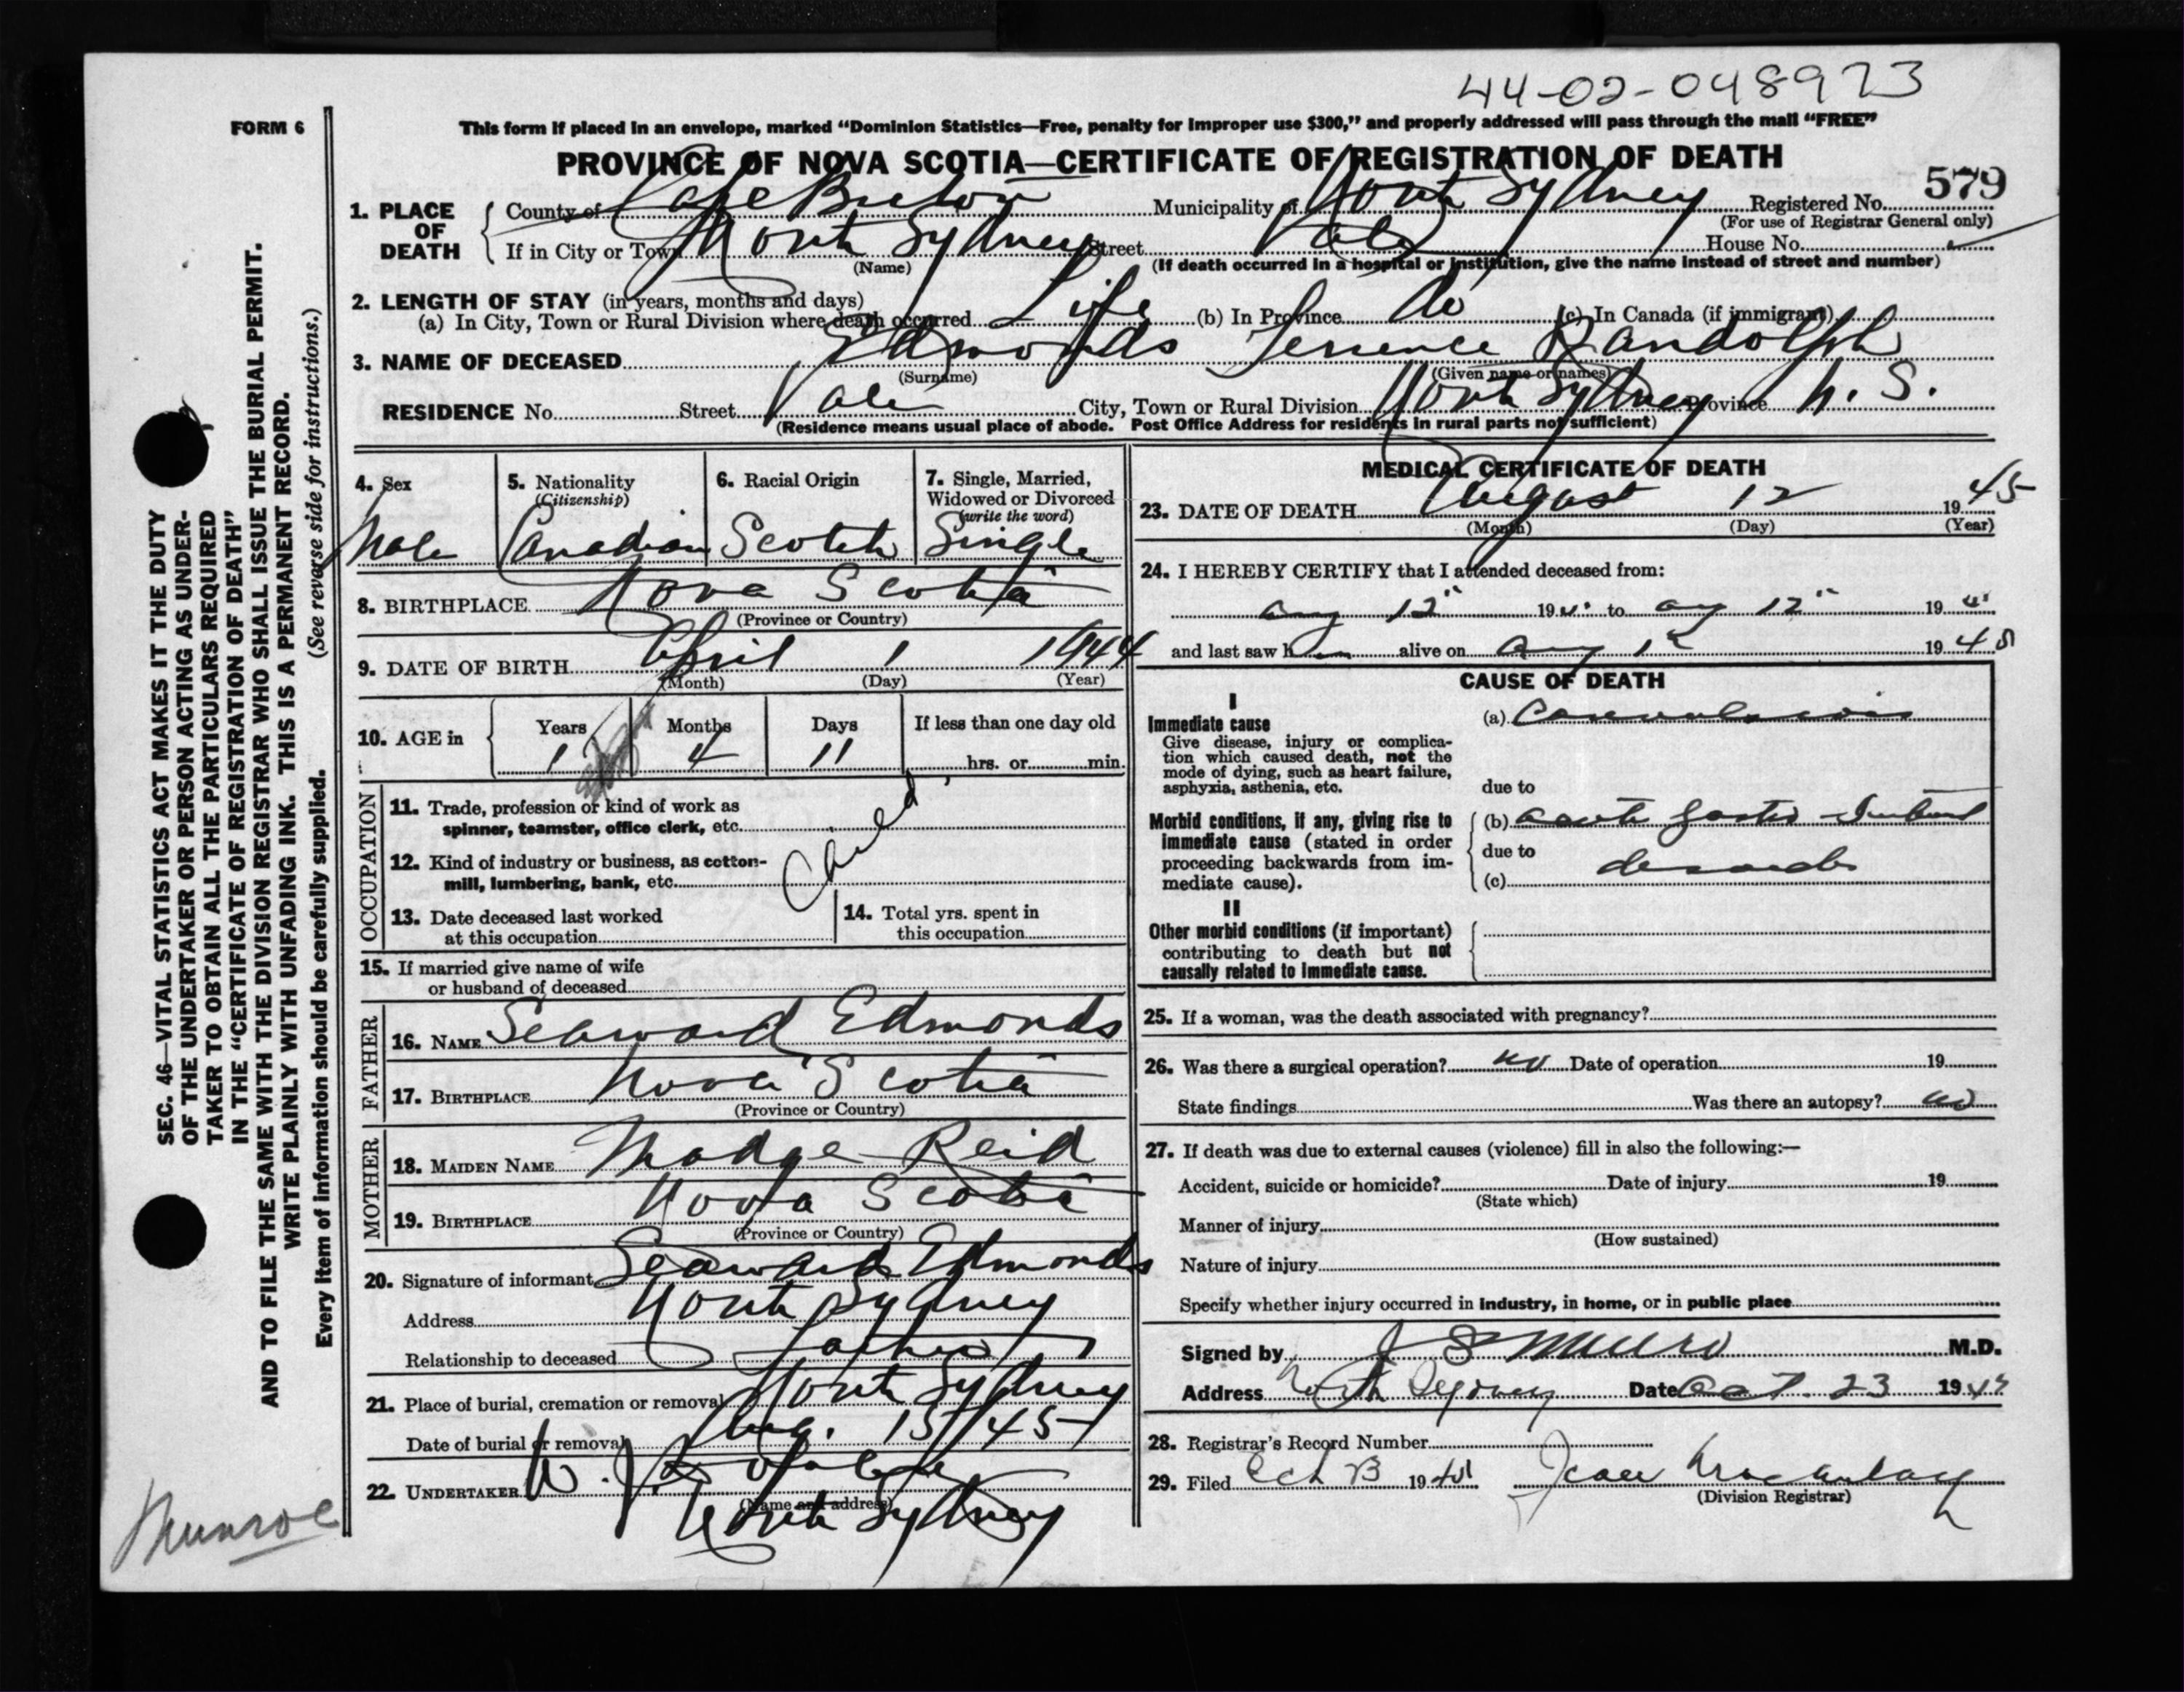 44-02-048973
FORM 6
This form if placed in an envelope, marked “Dominion Statistics—Free, penalty for improper use $300,” and properly addressed will pass through the mail “FREE”
PROVINCE OF NOVA SCOTIA—CERTIFICATE OF REGISTRATION OF DEATH
579
1. PLACE OF DEATH { County of Cape Breton Municipality of North Sydney Registered No.
(For use of Registrar General only)
If in City or Town North Sydney Street House No.
(Name) (If death occurred in a hospital or institution, give the name instead of street and number)
2. LENGTH OF STAY (in years, months and days)
(a) In City, Town or Rural Division where death occurred Life (b) In Province do (c) In Canada (if immigrant)
3. NAME OF DECEASED Edmonds Terrence Randolph
(Surname) (Given name or names)
RESIDENCE No. Street City, Town or Rural Division North Sydney Province N. S.
(Residence means usual place of abode. Post Office Address for residents in rural parts not sufficient)
4. Sex Male
5. Nationality (Citizenship) Canadian
6. Racial Origin Scotch
7. Single, Married, Widowed or Divorced (write the word) Single
8. BIRTHPLACE Nova Scotia
(Province or Country)
9. DATE OF BIRTH April 1 1944
(Month) (Day) (Year)
10. AGE in { Years Months Days If less than one day old
1 4 11 hrs. or min.
OCCUPATION
11. Trade, profession or kind of work as
spinner, teamster, office clerk, etc.
Child
12. Kind of industry or business, as cotton-
mill, lumbering, bank, etc.
13. Date deceased last worked
at this occupation
14. Total yrs. spent in
this occupation
15. If married give name of wife
or husband of deceased
FATHER
16. NAME Seaward Edmonds
17. BIRTHPLACE Nova Scotia
(Province or Country)
MOTHER
18. MAIDEN NAME Madge Reid
19. BIRTHPLACE Nova Scotia
(Province or Country)
20. Signature of informant Seaward Edmonds
Address North Sydney
Relationship to deceased Father
21. Place of burial, cremation or removal North Sydney
Date of burial or removal Aug. 15/45
22. UNDERTAKER W. J.
(Name and address)
North Sydney
MEDICAL CERTIFICATE OF DEATH
23. DATE OF DEATH August 12 1945
(Month) (Day) (Year)
24. I HEREBY CERTIFY that I attended deceased from:
Aug 12" 19 to Aug 12" 19
and last saw him alive on Aug 12 1945
CAUSE OF DEATH
I
Immediate cause
Give disease, injury or complica-
tion which caused death, not the
mode of dying, such as heart failure,
asphyxia, asthenia, etc.
(a) Convulsions
due to
Morbid conditions, if any, giving rise to
immediate cause (stated in order
proceeding backwards from im-
mediate cause).
(b) acute gastro
due to
(c)
II
Other morbid conditions (if important)
contributing to death but not
causally related to immediate cause.
25. If a woman, was the death associated with pregnancy?
26. Was there a surgical operation? no Date of operation 19
State findings Was there an autopsy? no
27. If death was due to external causes (violence) fill in also the following:—
Accident, suicide or homicide? Date of injury 19
(State which)
Manner of injury
(How sustained)
Nature of injury
Specify whether injury occurred in industry, in home, or in public place
Signed by J S Munro M.D.
Address North Sydney Date Oct. 23 19
28. Registrar's Record Number
29. Filed Oct 23 19 Jean
(Division Registrar)
SEC. 46—VITAL STATISTICS ACT MAKES IT THE DUTY
OF THE UNDERTAKER OR PERSON ACTING AS UNDER-
TAKER TO OBTAIN ALL THE PARTICULARS REQUIRED
IN THE “CERTIFICATE OF REGISTRATION OF DEATH”
AND TO FILE THE SAME WITH THE DIVISION REGISTRAR WHO SHALL ISSUE THE BURIAL PERMIT.
WRITE PLAINLY WITH UNFADING INK. THIS IS A PERMANENT RECORD.
Every item of information should be carefully supplied. (See reverse side for instructions.)
Munroe